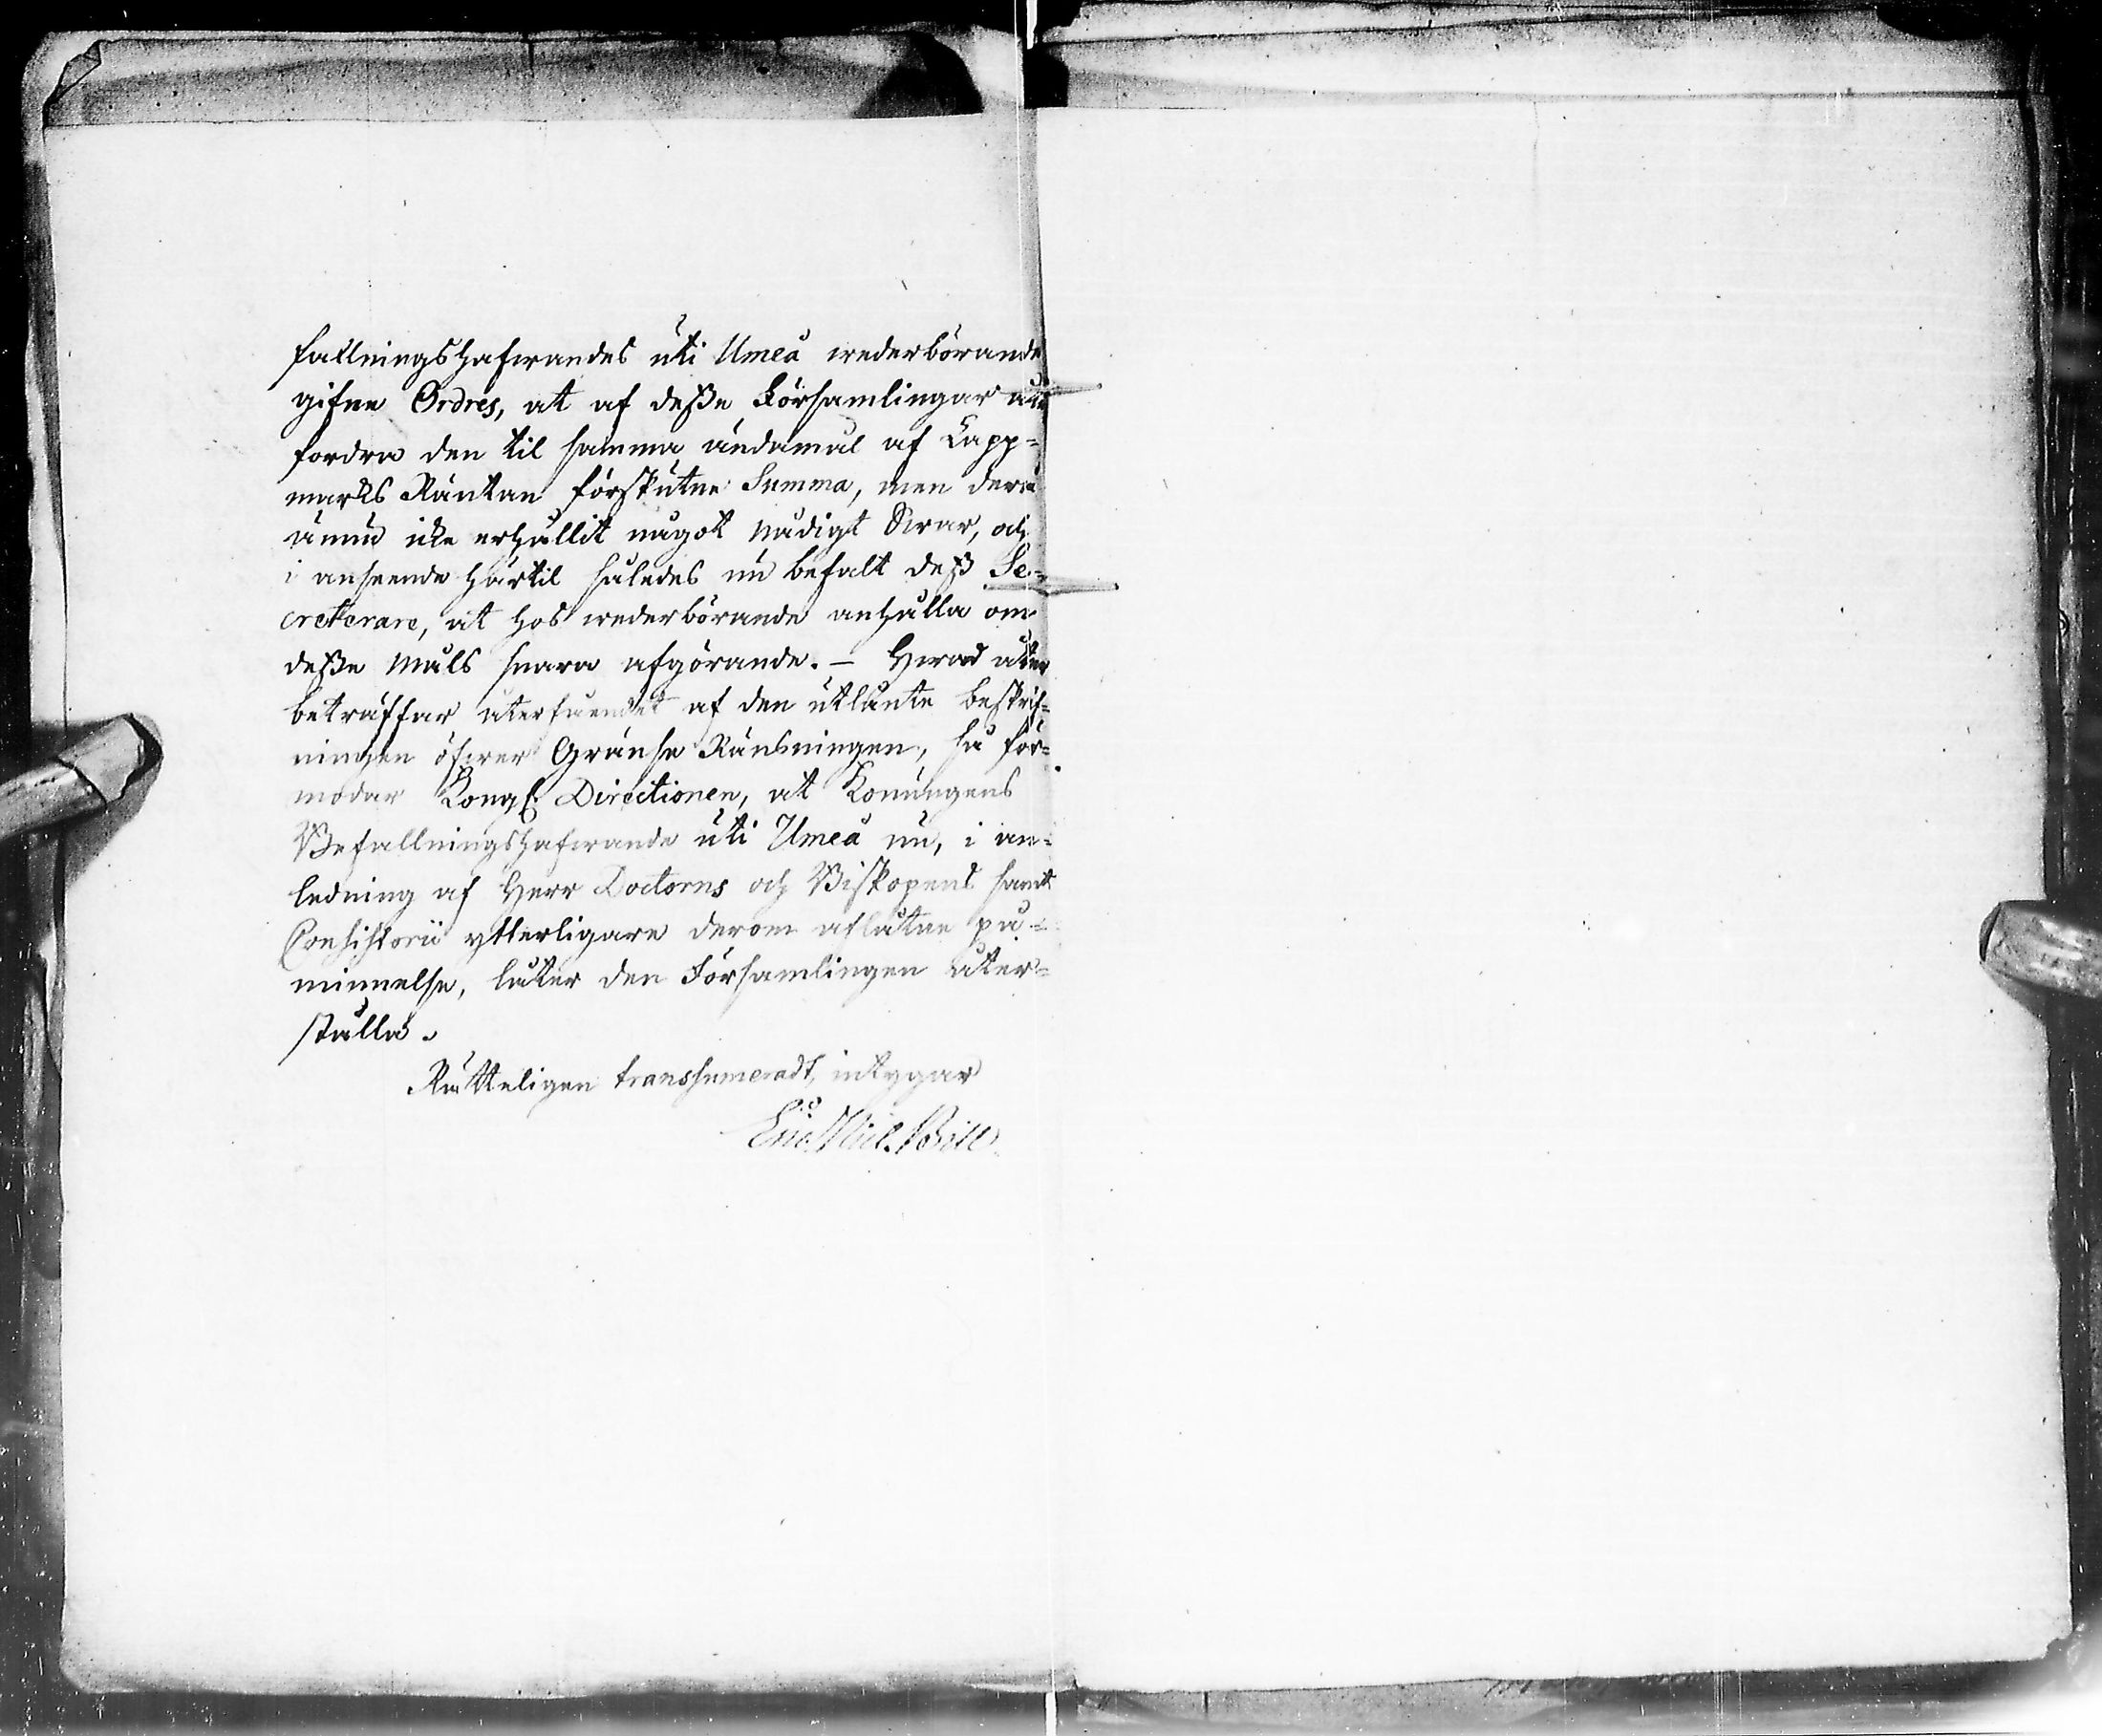 fallningshafwandes uti Umeå wederbörande
gifne Ordres, at af deße Församlingar ut
fordra den til samma ändamål af Lapp=
marks Räntan förskutne Summa, men derå
ännu icke erhållit något nådigt Swar, och
i anseende härtil således nu befalt deß Se=
creterare, at hos wederbörande anhålla om
deße måls snara afgörande. — Hwad åter
beträffar återfåendet af den utlånte beskrif=
ningen öfwer Gränse Ränsningen, så för=
modar Kongl. Directionen, at Konungens
Befallningshafwande uti Umeå nu, i an=
ledning af Herr Doctorns och Biskopens samt
Consistorii ytterligare derom aflåtne på=
minnelse, låter den Församlingen åter=
ställa.
Rätteligen transsumeradt, intygar
Eric